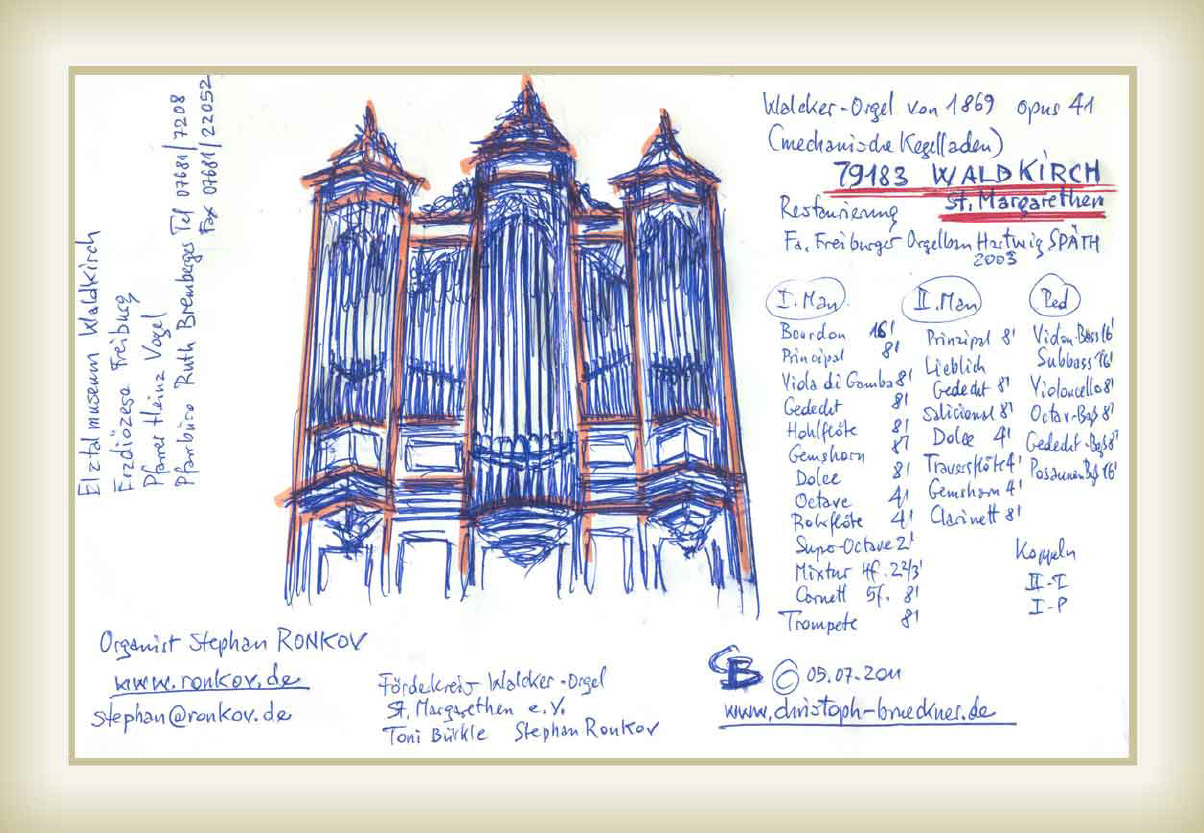 Walcker-Orgel von 1869 opus 41
(mechanische Kegelladen)
79183 WALDKIRCH
St. Margarethen
Restaurierung
Fa. Freiburger Orgelbau Hartwig SPÄTH
2003
I. Man
Bourdon 16'
Principal 8'
Viola di Gamba 8'
Gedeckt 8'
Hohlflöte 8'
Gemshorn 8'
Dolce 8'
Octave 4'
Rohrflöte 4'
Super-Octave 2'
Mixtur 4f. 2 2/3'
Cornett 5f. 8'
Trompete 8'
II. Man
Prinzipal 8'
Lieblich
Gedeckt 8'
Salicional 8'
Dolce 4'
Traversflöte 4'
Gemshorn 4'
Clarinett 8'
Ped
Violon-Bass 16'
Subbass 16'
Violoncello 8'
Octav-Baß 8'
Gedeckt-Baß 8'
Posaunen Bß 16'
Koppeln
II-I
I-P
Elztalmuseum Waldkirch
Erzdiözese Freiburg
Pfarrer Heinz Vogel
Pfarrbüro Ruth Bremberger Tel 07681/7208
Fax 07681/22052
Organist Stephan RONKOV
www.ronkov.de
stephan@ronkov.de
Förderkreis Walcker-Orgel
St. Margarethen e.V.
Toni Bürkle Stephan Ronkov
CB © 05.07.2011
www.christoph-brueckner.de